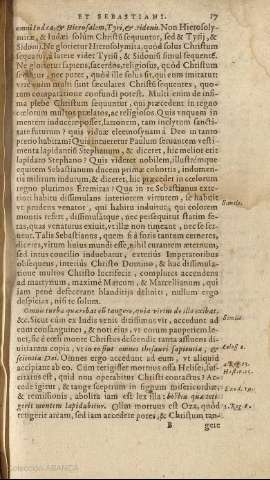 ET SEBASTIANI. 17
omni Iudæa, & Hierusalem, Tyri, & Sidonis. Non Hierosoly-
mitæ, & Iudæi solum Christũ sequuntur, sed & Tyrij, &
Sidonij. Ne glorietur Hierosolymita, quòd solus Christum
sequatur, à latere videt Tyrij, & Sidonij simul sequuntur.
Ne glorietur sapiens, sacerdos, religiosus, quòd Christum
sequitur, nec putet, quòd ille solus sit, qui eum imitatur:
viri quam multi sunt sæculares Christi sequentes, quo-
rum comparatione confundi potest. Multi enim de infi-
ma plebe Christum sequuntur, qui præcedent in regno
cœlorum multos prælatos, ac religiosos. Quis unquem in
mentem induceret posset, latronem, tam inclytum sancti-
tate futurum? quis viduæ eleemosynam à Deo in tanto
pretio habitam? Quis intueretur Paulum servantem vesti-
menta lapidantis Stephanum, & diceret, hic melior erit
lapidato Stephano? Quis videret nobilem, illustrémque
equitem Sebastianum ducem primæ cohortis, indumen-
tis militum indutum, & diceret, hic præcedet in cœlorum
regno plurimos Eremitas? Quia in re Sebastianus exte-
riori habitu dissimulans interiorem virtutem, se habuit
ut prudens venator, qui habitus induitur, qui colorem
montis refert, dissimulatque, nec persequitur statim fe-
ras, quas venaturus exiuit, vt illæ non timeant, nec se ser-
uent. Talis Sebastianus, quem si à foris tantum cerneres,
diceres, virum huius mundi esse, nihil curantem æternum,
sed intus concilio induebatur, exterius Imperatoribus
obsequens, interius Christo Domino, & hac dissimula-
tione multos Christo lucrifecit, complures accendens
ad martyrium, maximè Marcum, & Marcellianum, qui
iam penè defecerant blanditijs deliniti, nullum ergo
despicias, nisi te solum.
Omnis turba quærebat eũ tangere, quia virtus de illo exibat.
Sicut cùm ex Indiis venis dissimulatus, accedunt ad
eum consanguinei, & noti eius, vt eorum pauperiem le-
uet, sic è cœlis monte Christus descendit tanta affluens di-
uitiarum copia, vt in eo sunt omnes thesauri sapientiæ, &
scientiæ Dei. Omnes ergo accedunt ad eum, vt aliquid
accipiant ab eo. Cùm tetigisset mortuus ossa Helisei, sus-
citatus est, quid non operabitur Christi contactus? Ac-
cede igitur, & tange sceptrum in signum misericordiæ,
& remissionis, abolita iam est lex illa: bestia quæ teti-
gerit montem lapidabitur. Olim mortuus est Oza, quòd
tetigerit arcam, sed iam accedere potes, & Christum tan-
B geie
Similis.
Simile
Colos. 2.
4. Reg. 13.
Hester. 15.
Exod. 19.
2. Reg. 6.
Colección ABANCA